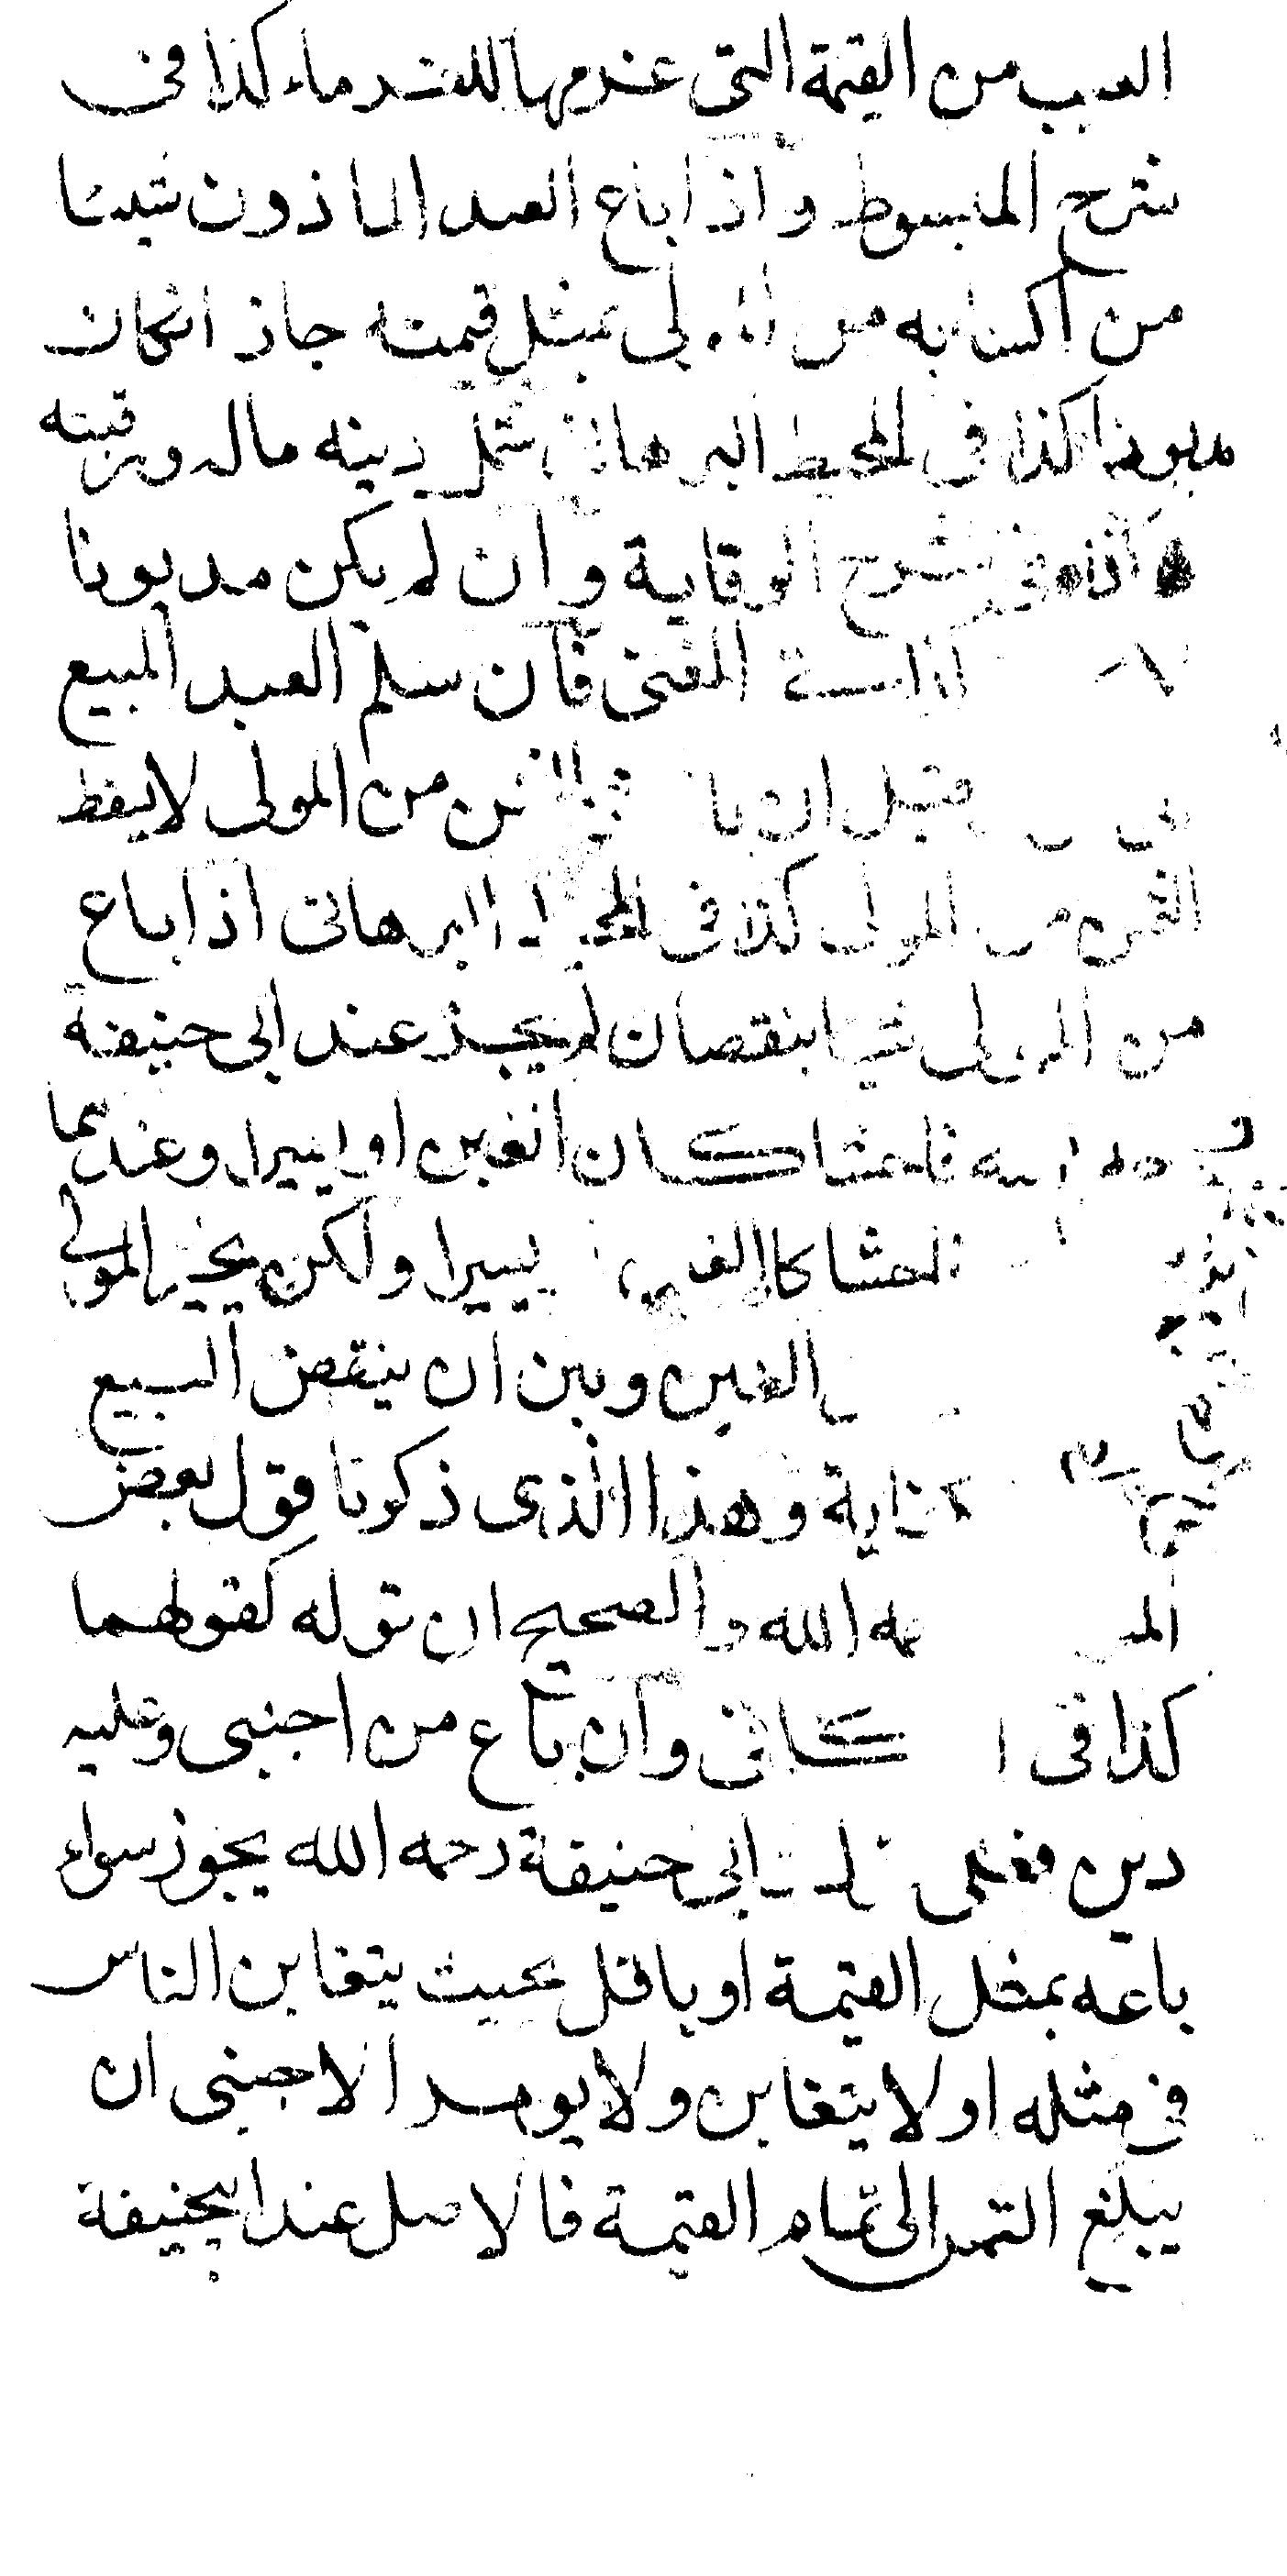 العيب من القيمة التى غرمها للغرماء كذا فى
شرح المبسوط واذا باع العبد الماذون شيئا
من اكسابه من المولى بمثل قيمته جاز انكان
مديونا كذا فى المحيط البرهانى شمل دينه ماله ورقبته
فى شرح الوقاية وان لم يكن مديونا
المفتى فان سلم العبد المبيع
قبل ان من المولى لايسقط
الثمن من المولى كذا فى المحيط البرهانى اذا باع
من المولى شيا بنقصان لم يجز عند ابى حنيفة
فاحشا كان الغبن او يسيرا وعندهما
فاحشا كان الغبن يسيرا ولكن يخير المولى
الغبن وبين ان ينقض البيع
وهذا الذى ذكرنا قول بعض
الله والصحيح ان قوله كقولهما
كذا فى الكافى وان باع من اجنبى وعليه
دين فعلى ابى حنيفة رحمه الله يجوز سواء
باعه بمثل القيمة او باقل بحيث يتغابن الناس
فى مثله او لا يتغابن ولا يومر الاجنبى ان
يبلغ الثمن الى تمام القيمة فالاصل عند ابيحنيفة